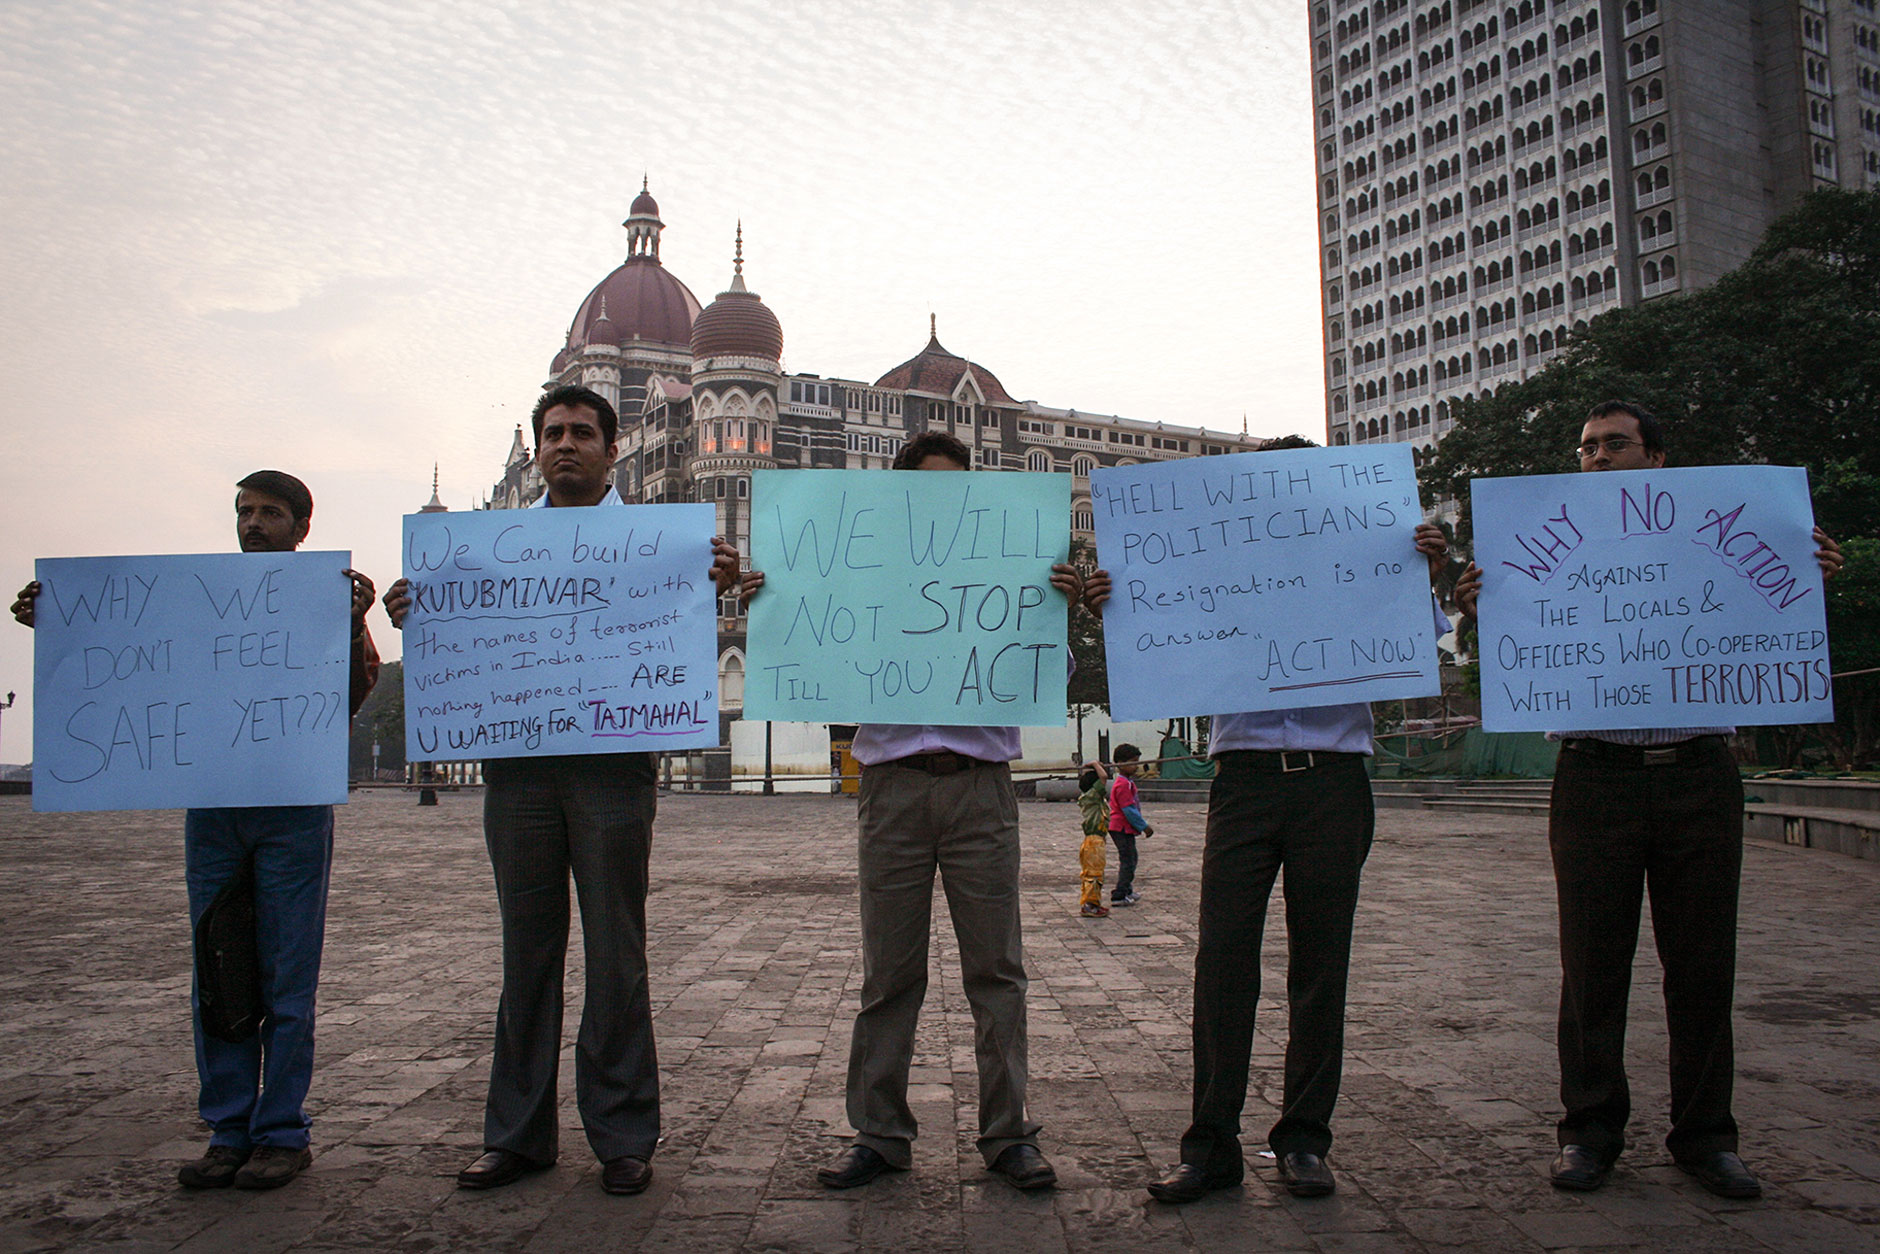 WHY WE
DON'T FEEL....
SAFE YET???
We Can build
"KUTUBMINAR" with
the names of terrorist
victims in India..... still
nothing happened---- ARE
U WAITING FOR "TAJMAHAL"
WE WILL
NOT 'STOP
TILL "YOU" ACT
"HELL WITH THE
POLITICIANS"
Resignation is no
answer "
"ACT NOW".
WHY NO ACTION
AGAINST
THE LOCALS &
OFFICERS WHO CO-OPERATED
WITH THOSE TERRORISTS